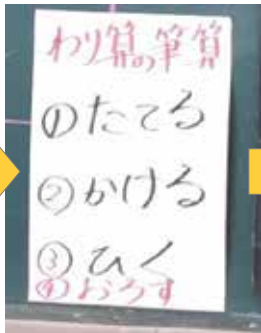 わり算の筆算
①たてる
②かける
③ひく
④おろす